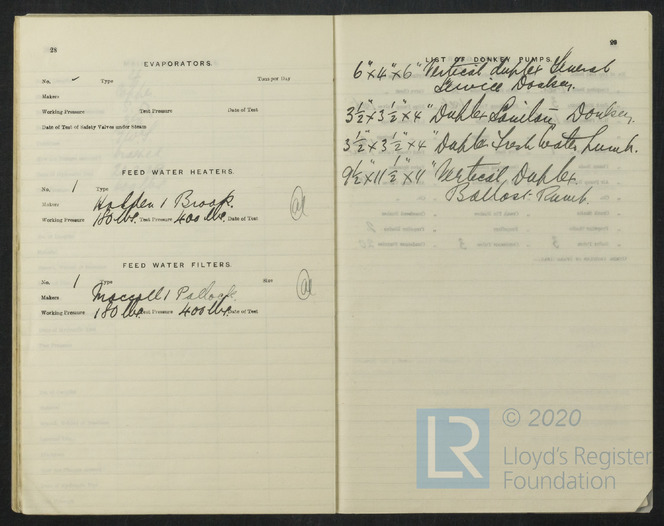 28
EVAPORATORS.
No. Type Tons per Day
Makers
Working Pressure Test Pressure Date of Test
Date of Test of Safety Valves under Steam
FEED WATER HEATERS.
No. 1 Type
Makers Holden & Brook.
Working Pressure 180 lbs. Test Pressure 400 lbs. Date of Test
FEED WATER FILTERS.
No. 1 Type Size
Makers & Pollock.
Working Pressure 180 lbs. Test Pressure 400 lbs. Date of Test
29
LIST OF DONKEY PUMPS.
6" x 4" x 6" Vertical duplex General
Service Donkey.
3 1/2" x 3 1/2" x 4" Duplex Sanitary Donkey.
3 1/2" x 3 1/2" x 4" Duplex Fresh Water Pump.
9 1/2" x 11 1/2" x 11" Vertical Duplex
Ballast Pump.
LR
© 2020
Lloyd's Register
Foundation